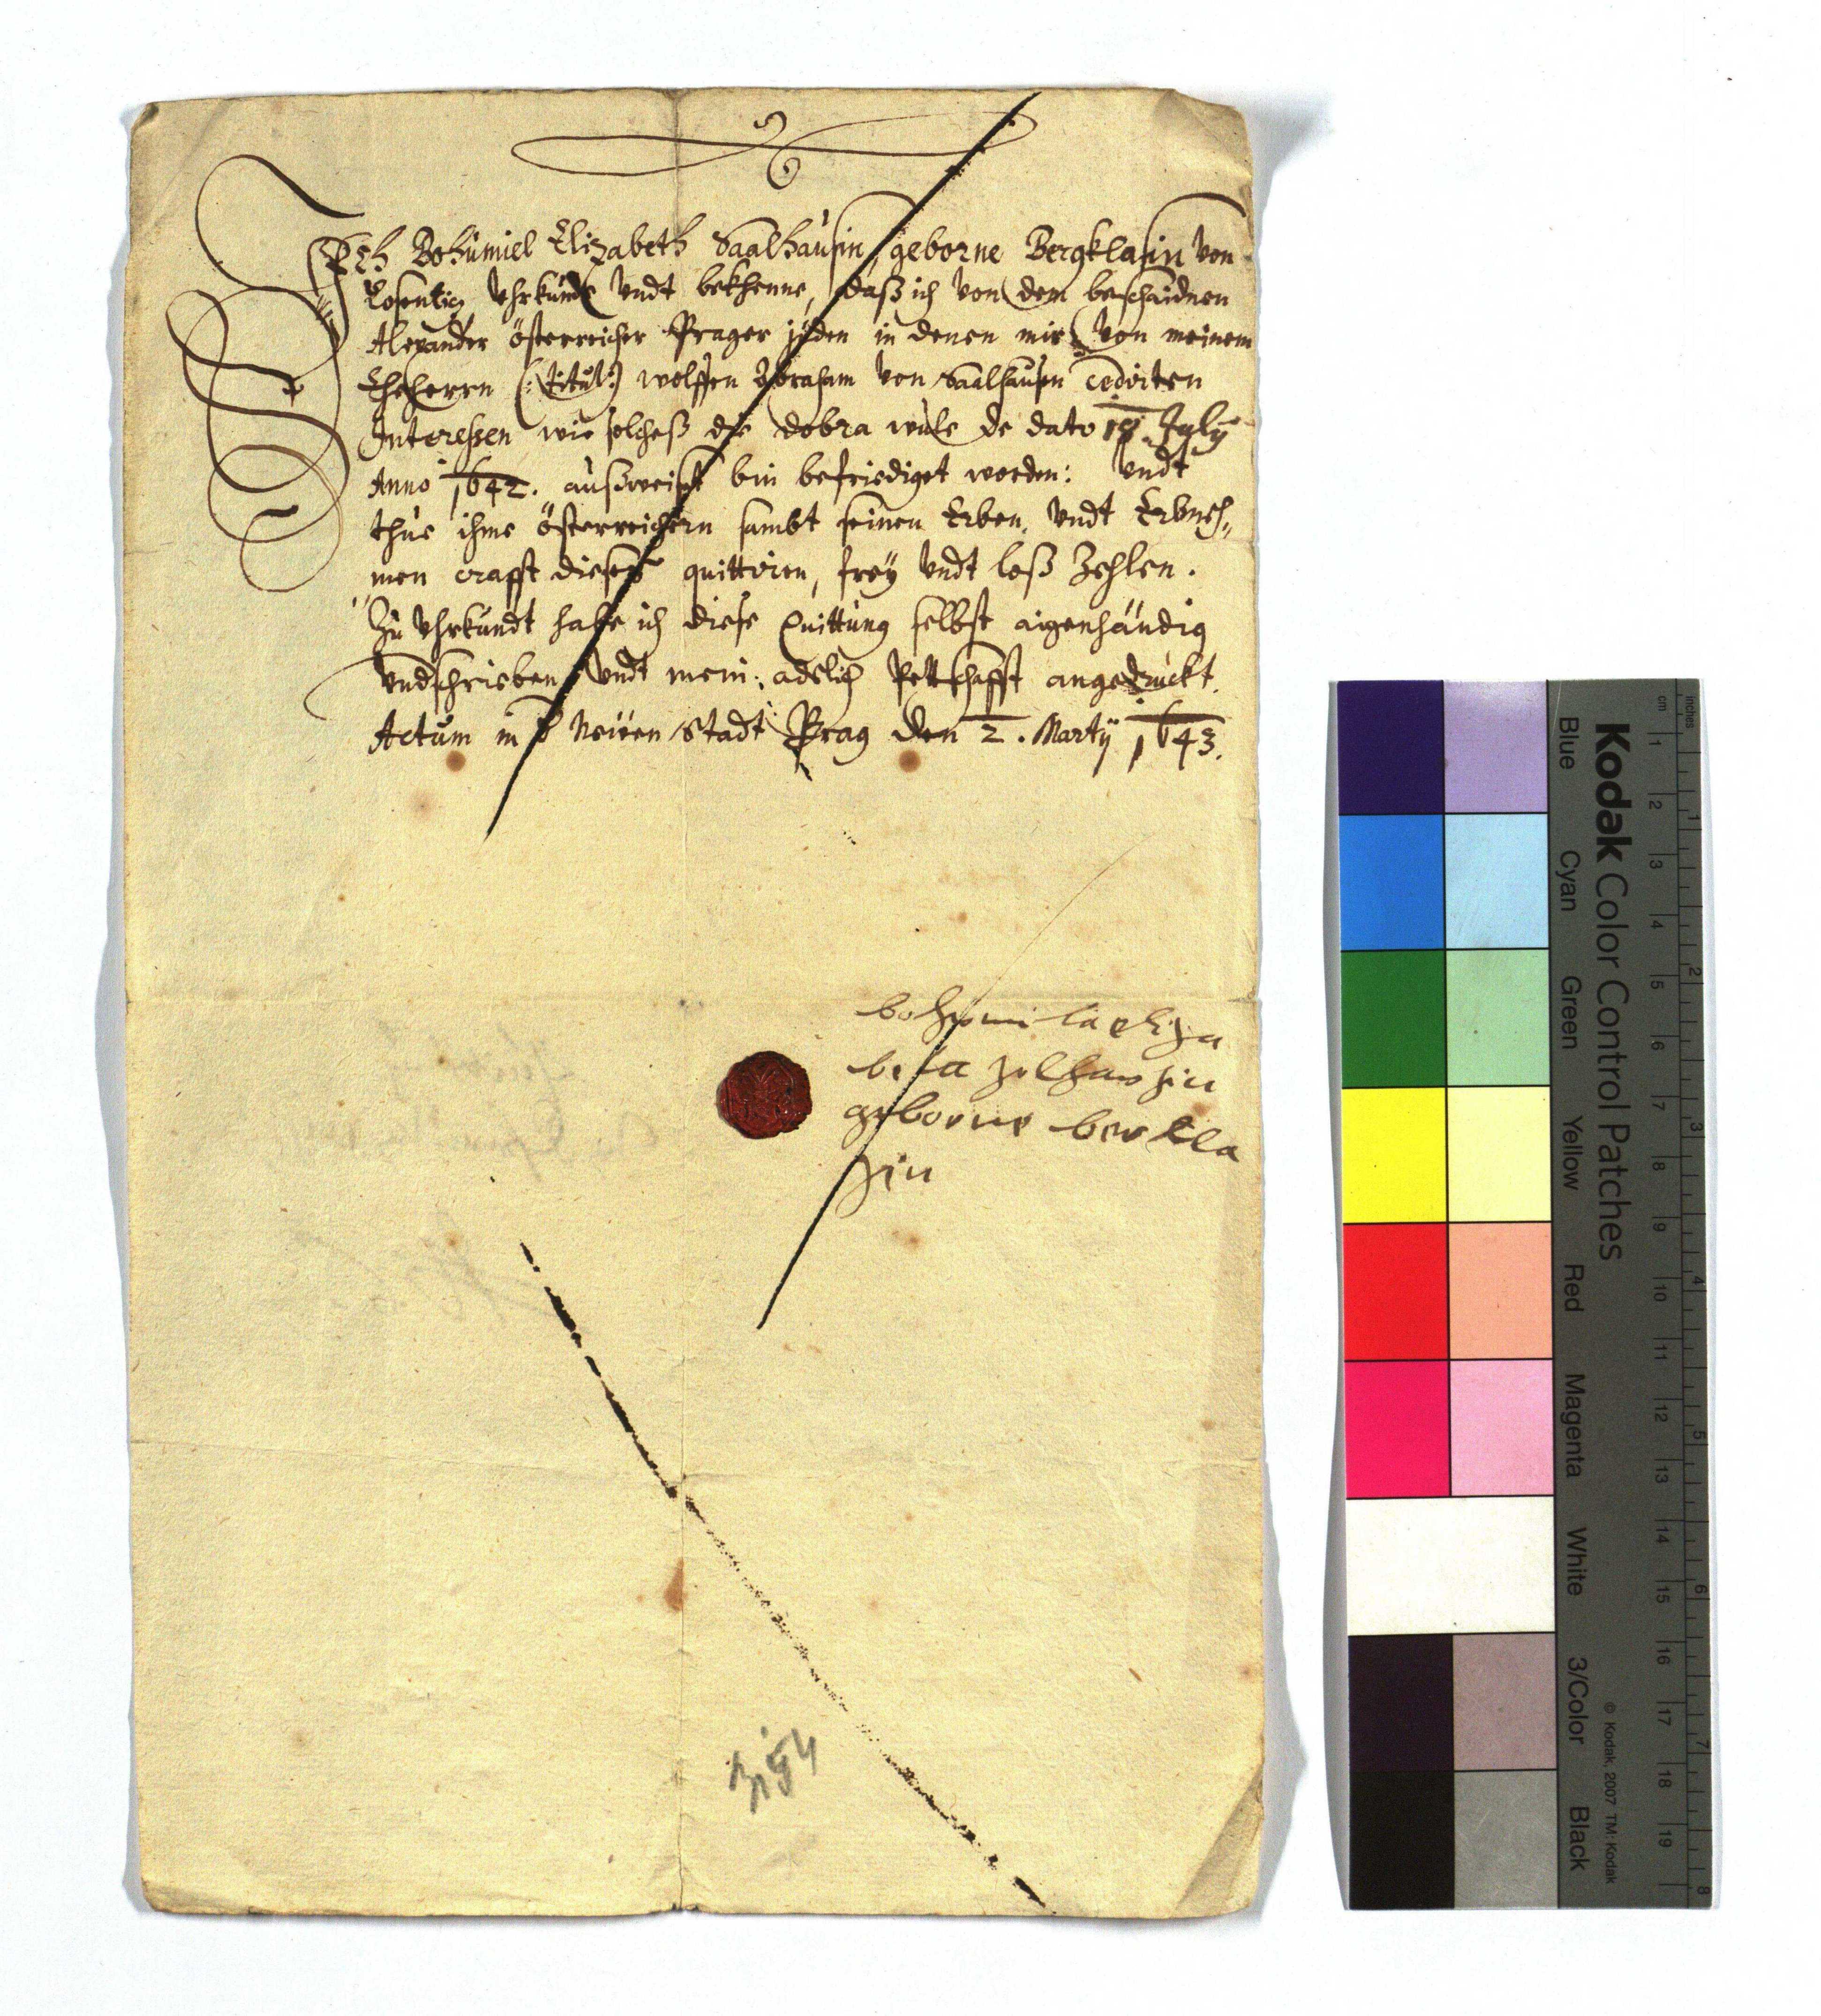 Ich Bohumiel Elizabeth Saalhausin, geborne Bergklasin von
Losentig Uhrkunde vndt bekhenne, daß ich von dem beschaidnen
Alexander österreicher Prager juden in denen mir von meinem
Eheherrn (: titul :) wolffen Abraham von Saalhausen cedirten
Interessen wie solcheß die dobra wule de dato 18. July
Anno 1642. außweist bin befriediget worden: Vndt
thue ihme österreichern sambt seinen Erben, vndt Erbneh„
men crafft dieses quittiren, frey vndt loß Zehlen.
Zu Uhrkundt habe ich diese Quittung selbst aigenhändig
vndschrieben vndt mein adelich Pettschafft angedruckt.
Actum in d Neuen Stadt Prag den 2. Marty 1643.
bohumila eliza
beta zolhauszin
geborne berkla
zin
Kodak Color Control Patches
Blue Cyan Green Yellow Red Magenta White 3/Color Black
© Kodak, 2007 TM: Kodak
cm 1 2 3 4 5 6 7 8 9 10 11 12 13 14 15 16 17 18 19
inches 1 2 3 4 5 6 7 8